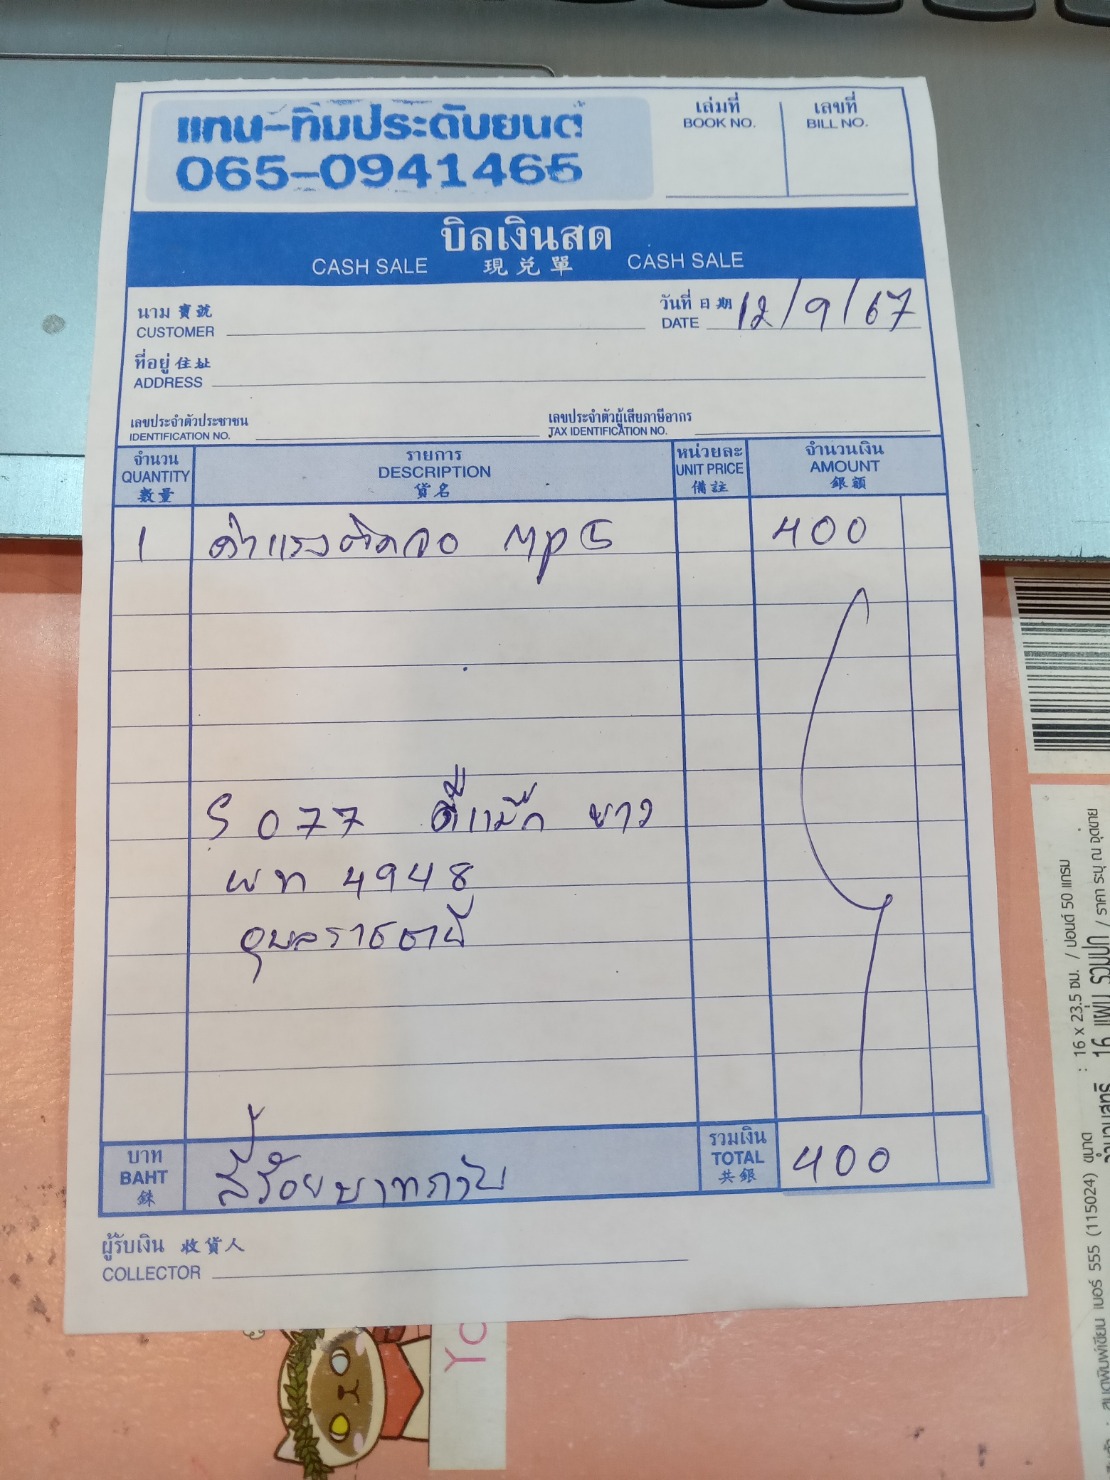 แทน-ทิมประดับยนต์
065-0941465
เล่มที่
BOOK NO.
เลขที่
BILL NO.
บิลเงินสด
CASH SALE 現兑單 CASH SALE
นาม 寶號
CUSTOMER
วันที่ 日期
DATE 12/9/67
ที่อยู่ 住址
ADDRESS
เลขประจำตัวประชาชน
IDENTIFICATION NO.
เลขประจำตัวผู้เสียภาษีอากร
TAX IDENTIFICATION NO.
จำนวน
QUANTITY
數量
รายการ
DESCRIPTION
貨名
หน่วยละ
UNIT PRICE
備註
จำนวนเงิน
AMOUNT
銀額
1 ค่าแรงติดจอ MP5 400
S 077 ดีแม็ก ขาว
ผท 4948
อุบลราชธานี
บาท
BAHT
銖
สี่ร้อยบาทถ้วน
รวมเงิน
TOTAL
共銀
400
ผู้รับเงิน 收貨人
COLLECTOR
สมุดพิมพ์เขียน เบอร์ 555 (115024)
ขนาด : 16 x 23.5 ซม. / ปอนด์ 50 แกรม
16 แผ่น รวมปก / ราคา ระบุ ณ จุดขาย